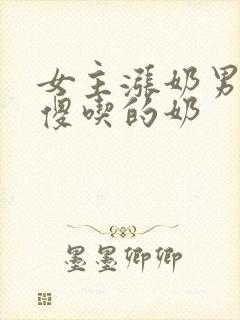 女主涨奶男
傻喫的奶
墨墨卿卿